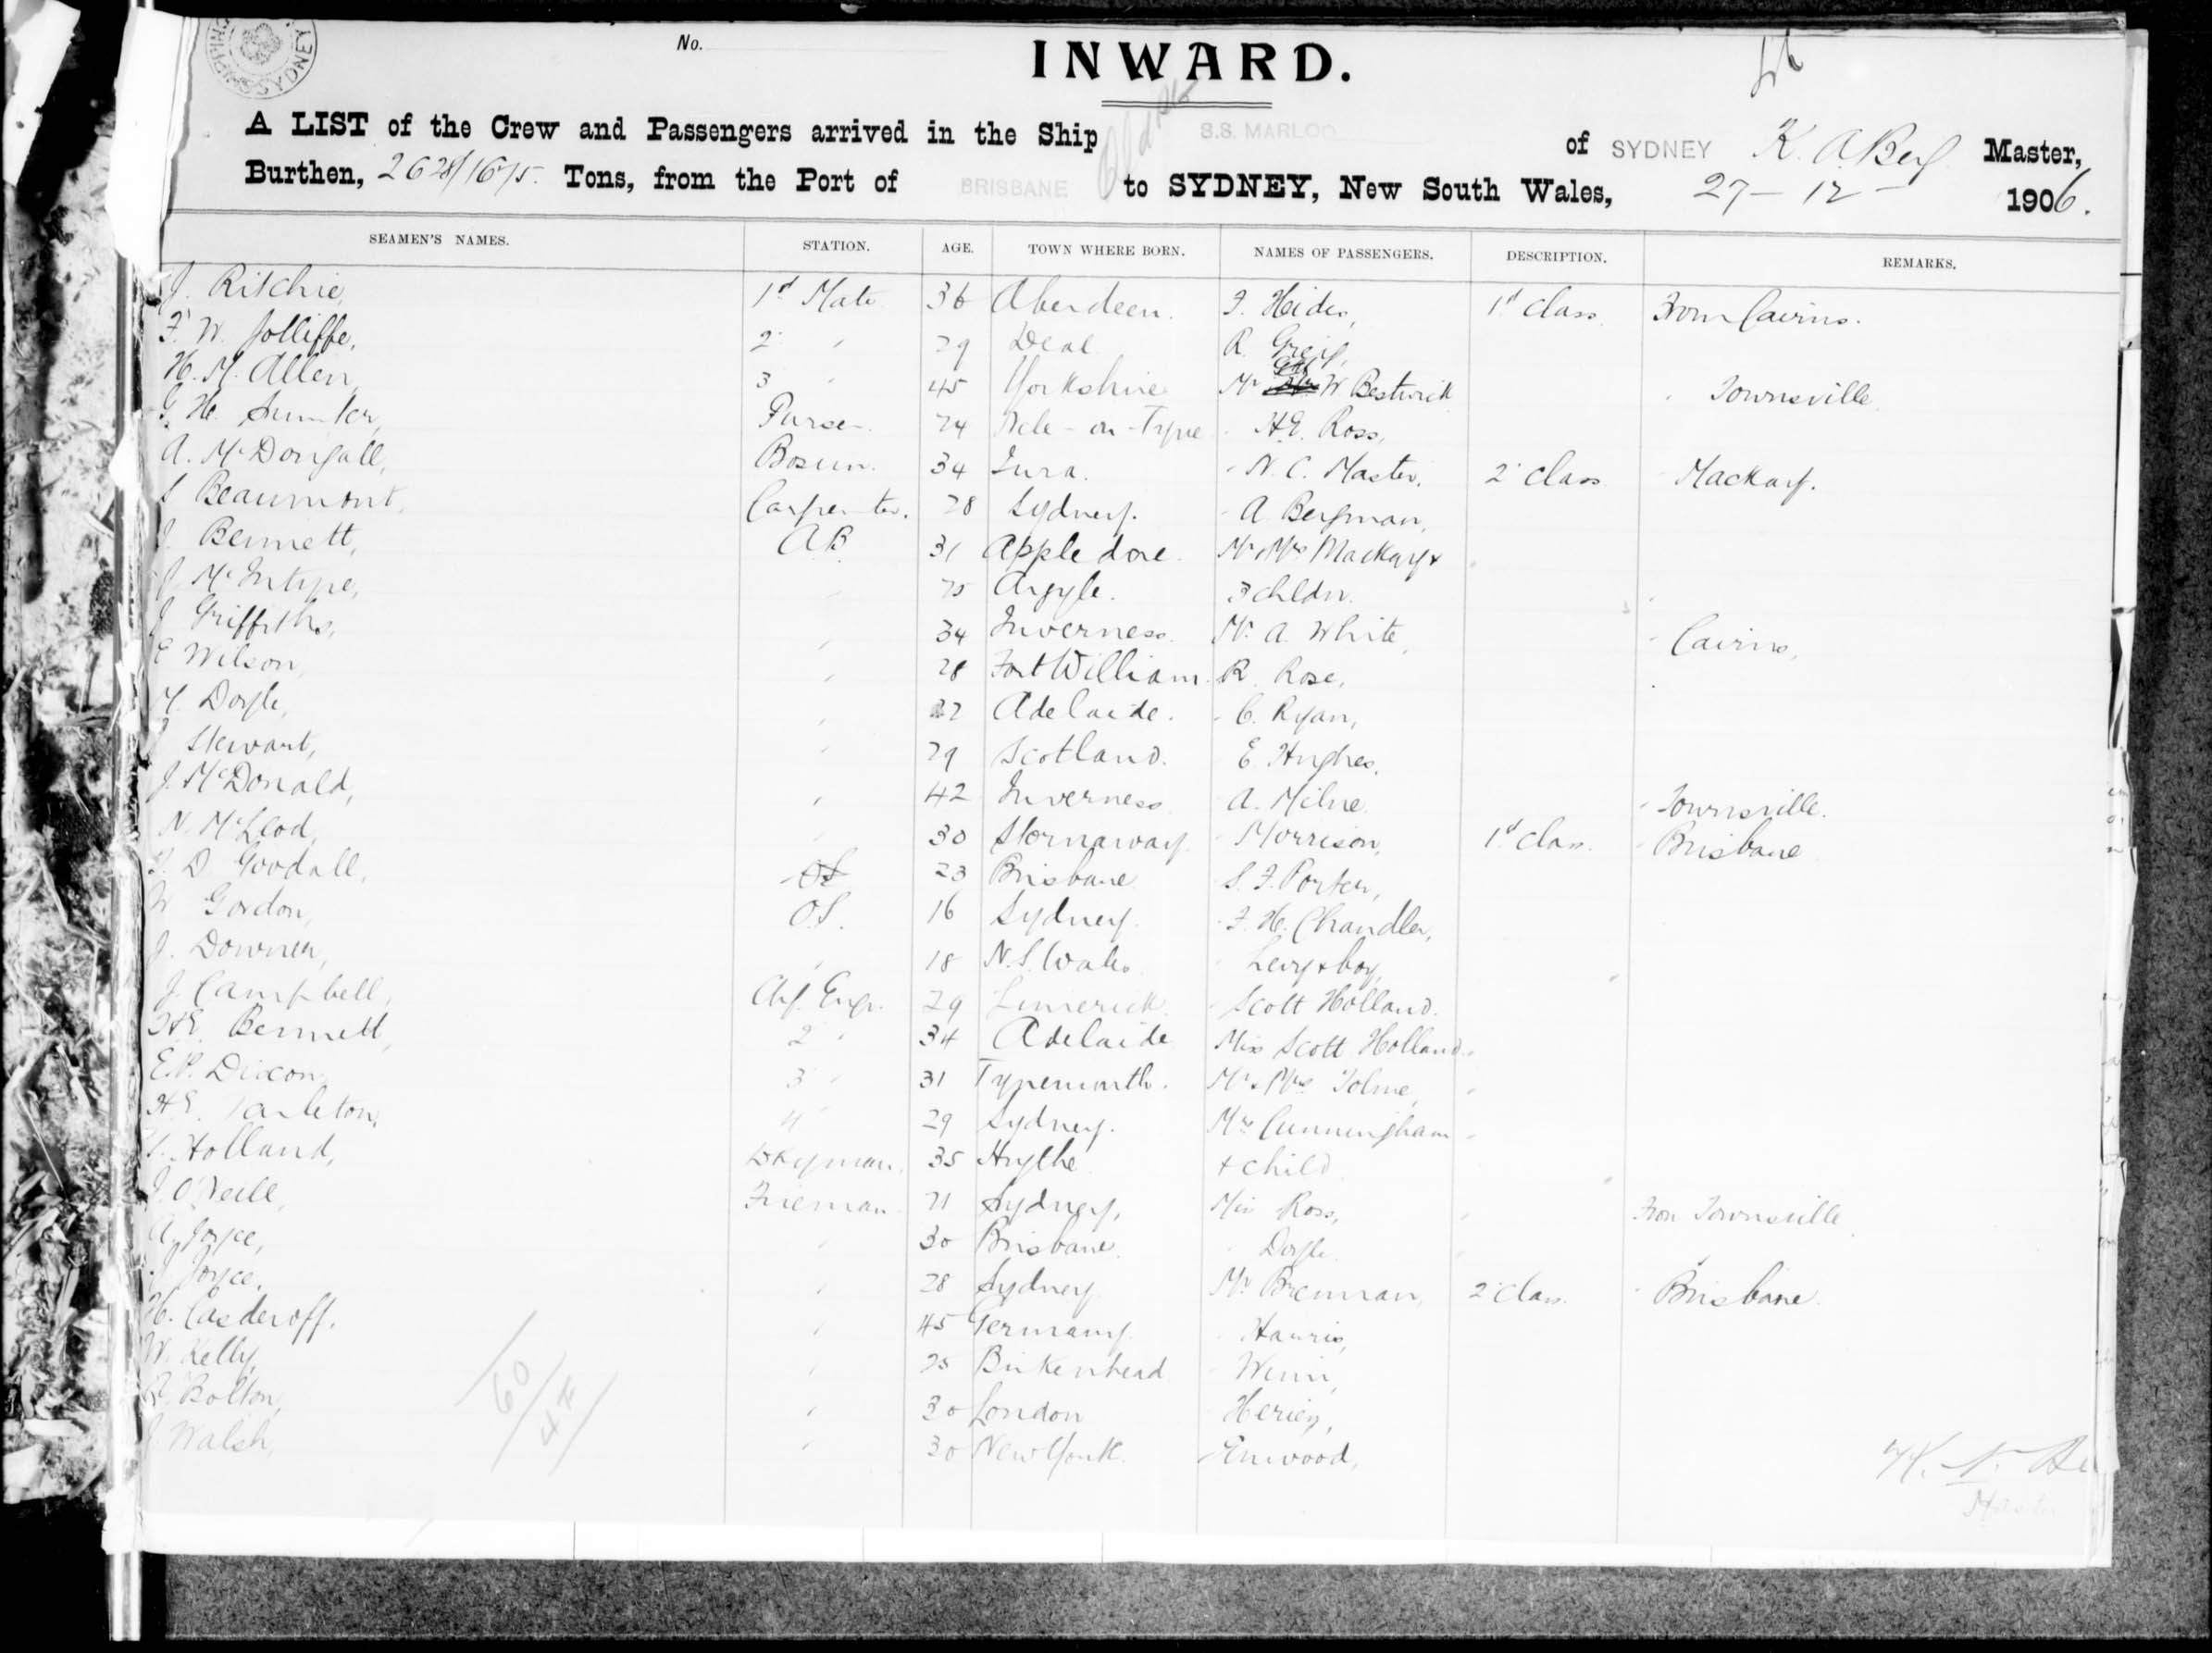 SHIPPING SYDNEY
No.
INWARD.
A LIST of the Crew and Passengers arrived in the Ship S.S. MARLOO of SYDNEY K. A Berg Master,
Burthen, 2628/1675 Tons, from the Port of BRISBANE Qld to SYDNEY, New South Wales, 27 - 12 - 1906.
SEAMEN'S NAMES. STATION. AGE. TOWN WHERE BORN. NAMES OF PASSENGERS. DESCRIPTION. REMARKS.
J. Ritchie, 1st Mate 36 Aberdeen. F. Heides, 1st Class. From Cairns.
F. W. Jolliffe, 2 " 29 Deal R. Greig,
H. M. Allen, 3 " 45 Yorkshire Mr W Bestwick " Townsville.
G. H. Sumter, Purser. 24 Ncle-on-Tyne " H.E. Ross,
A. McDougall, Bosun. 34 Jura. " N. C. Master, 2 Class. " Mackay.
S Beaumont, Carpenter. 28 Sydney. " A Bergman,
J. Bennett, A.B. 31 Appledore. Mr & Mrs Mackay &
J. McIntyre, " 25 Argyle. 3 chldn.
J Griffiths, " 34 Inverness. Mr. A. White, " Cairns,
E Wilson, " 28 Fort William. R. Rose,
M. Doyle, " 27 Adelaide. " C. Ryan,
J Stewart, " 29 Scotland. E Hughes,
J. McDonald, " 42 Inverness A. Milne. " Townsville.
N. McLeod, " 30 Stornaway. " Morrison, 1st Class. " Brisbane
D Goodall, OS 23 Brisbane S. F. Porter,
W Gordon, O.S. 16 Sydney. " F. H. Chandler,
J. Downer, " 18 N.S. Wales " Levy & boy,
J. Campbell, Chf. Engr. 29 Limerick. " Scott Holland.
Bennett, 2 " 34 Adelaide Miss Scott Holland.
E.P. Dixon, 3 " 31 Tynemouth. Mr & Mrs Tolme,
H.E. Tarleton, 4 " 29 Sydney. Mrs Cunningham
T. Holland, Dkeyman. 35 Hythe & child
J. O'Neill, Fireman 21 Sydney, Miss Ross, From Townsville.
A. Joyce, " 30 Brisbane. " Doyle.
J Joyce, " 28 Sydney Mr Brennan, 2 Class. " Brisbane.
H. Casderoff. " 45 Germany. " Harris,
W. Kelly, " 25 Birkenhead " Winn,
R. Bolton, " 30 London
J Walsh, " 30 New York.
60/47/